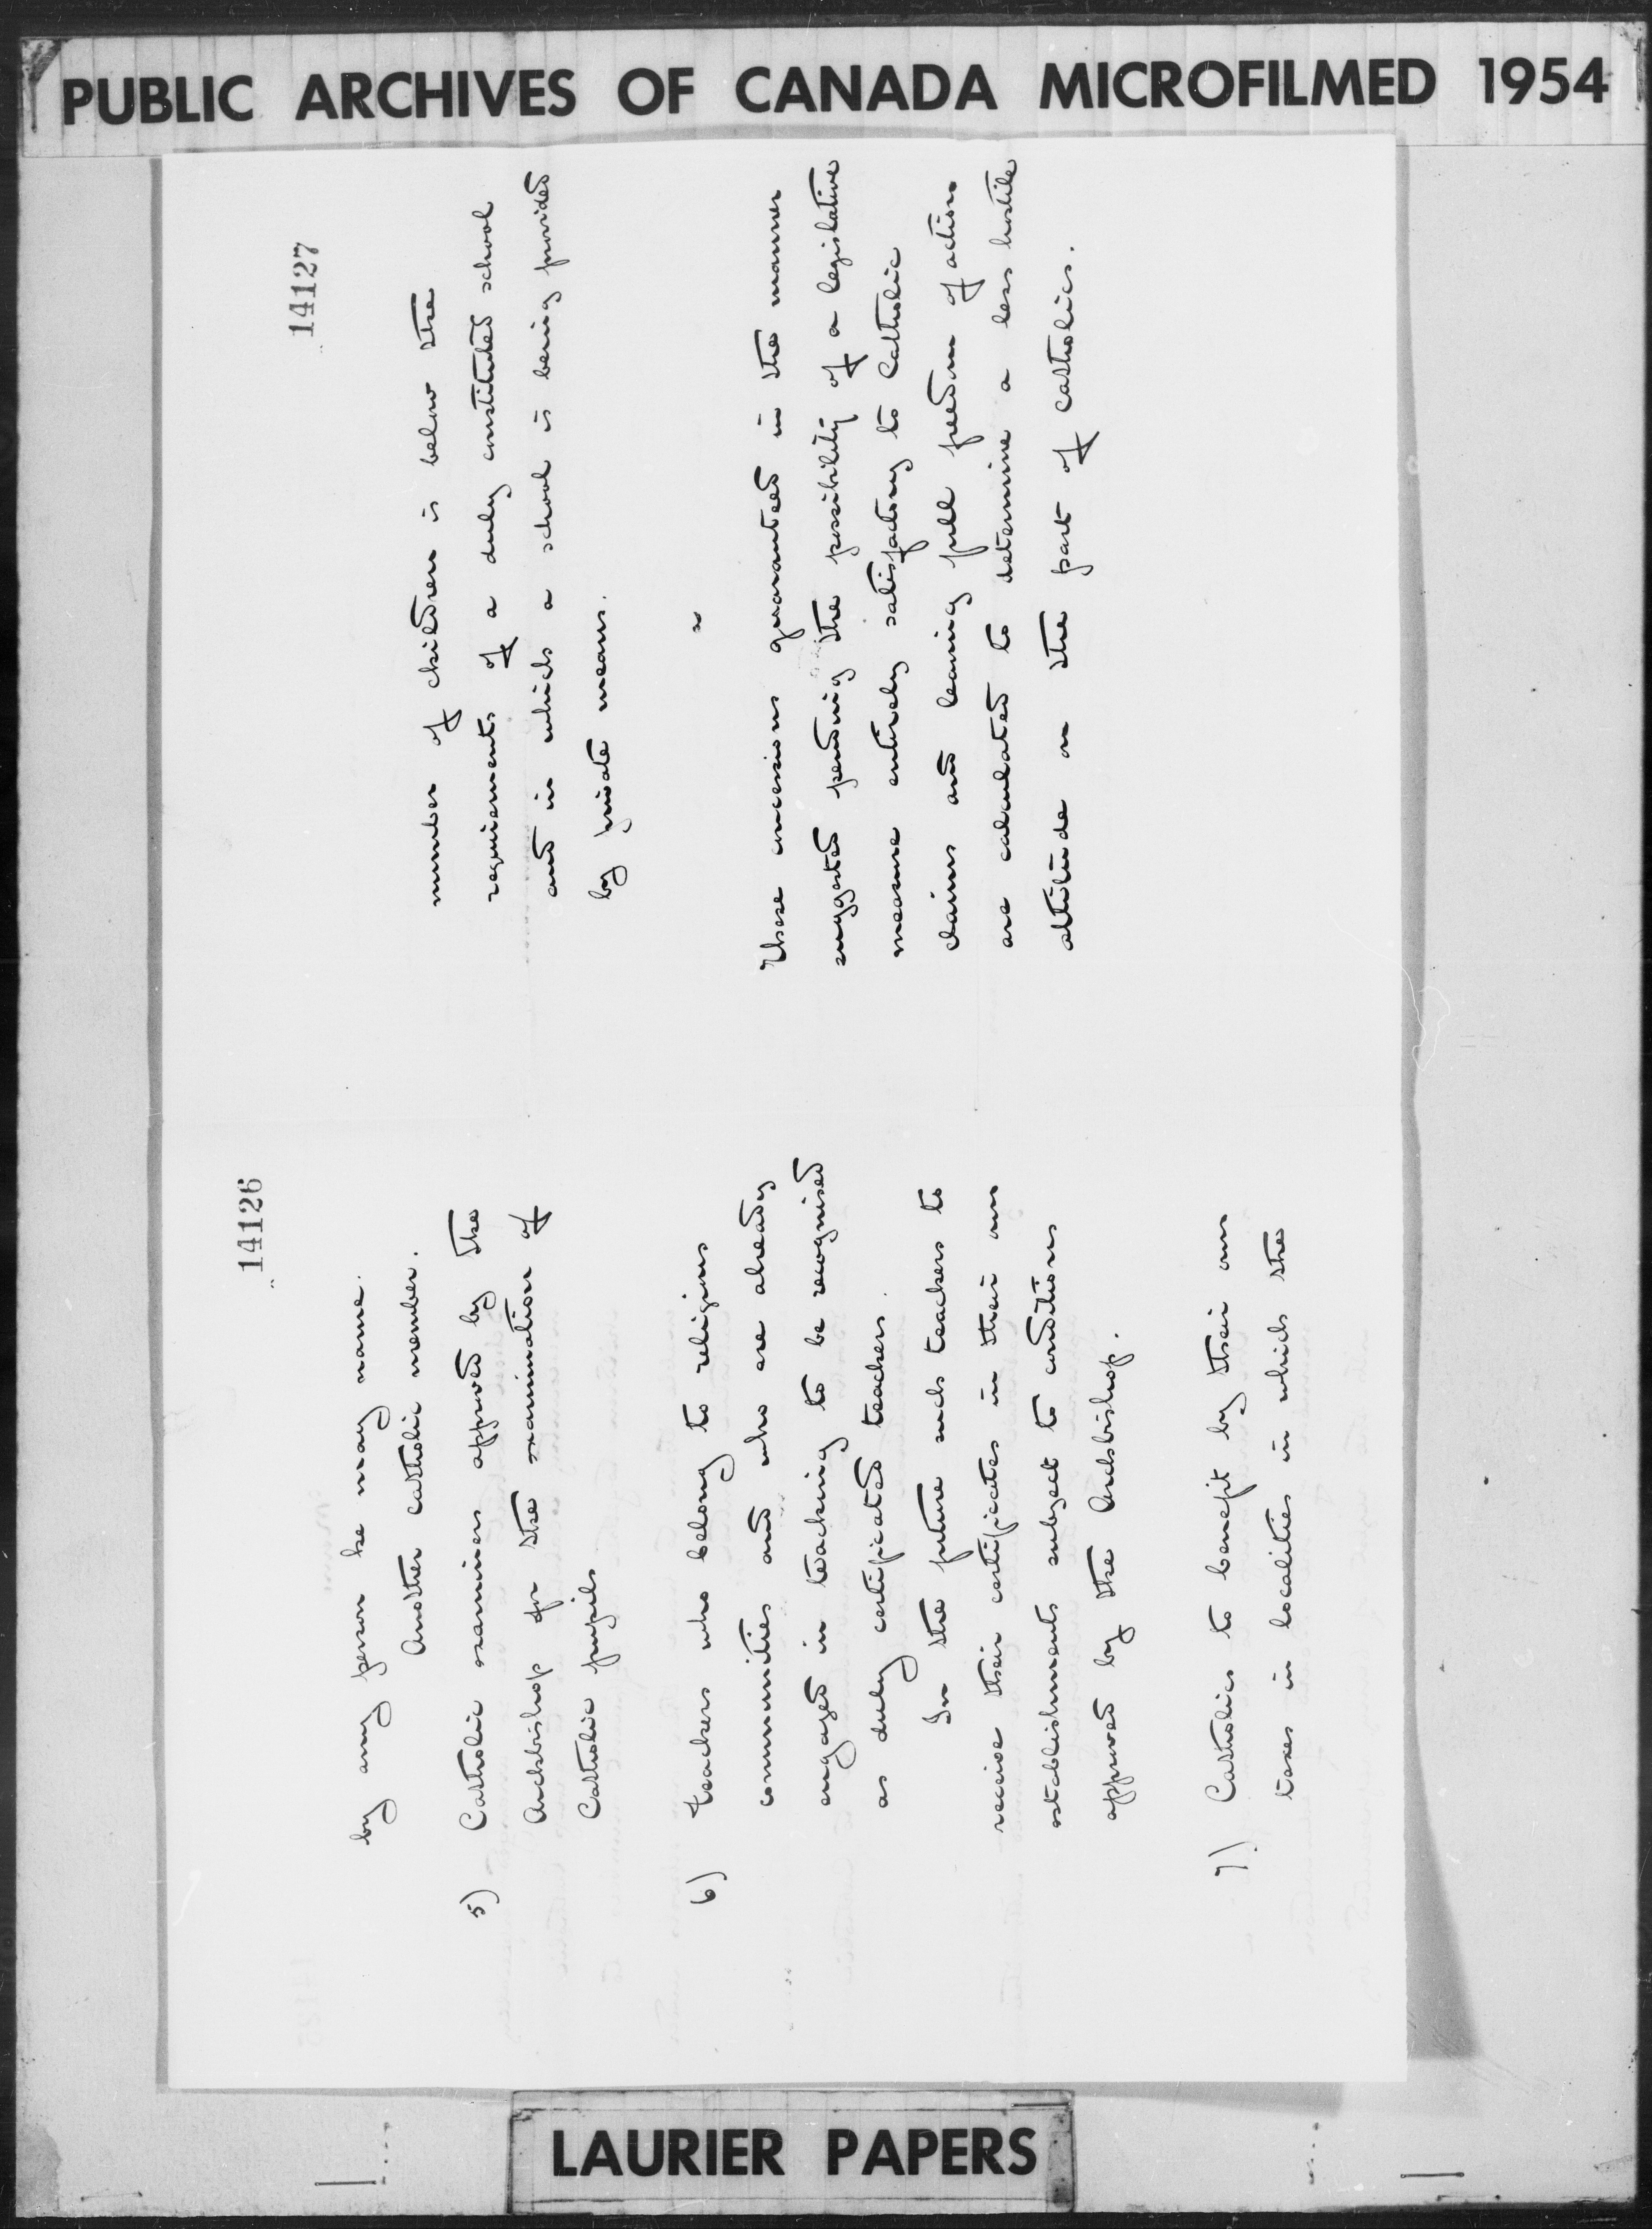 PUBLIC ARCHIVES OF CANADA MICROFILMED 1954
14126
by any person he may name.
Another catholic member.
5) Catholic examiners approved by the
Archbishop for the examination of
Catholic pupils
6) teachers who belong to religious
communities and who are already
engaged in teaching to be recognised
as duly certificated teachers.
In the future such teachers to
receive their certificates in their own
establishments subject to conditions
approved by the Archbishop.
7) Catholics to benefit by their own
taxes in localities in which the
14127
number of children is below the
requirements of a duly constituted school
and in which a school is being provided
by private means.
These concessions guaranteed in the manner
suggested pending the possibility of a legislative
measure entirely satisfactory to Catholic
claims and leaving full freedom of action
are calculated to determine a less hostile
attitude on the part of catholics.
LAURIER PAPERS